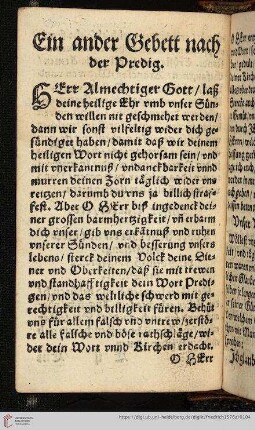 Ein ander Gebett nach
der Predig.
HErr Almechtiger Gott / laß
deine heilige Ehr vmb vnser Sün-
den willen nit geschmehet werden /
dann wir sonst vilfeltig wider dich ge-
sündiget haben / damit daß wir deinem
heiligen Wort nicht gehorsam sein / vnd
mit vnerkantnuß / vndanckbarkeit vnnd
murren deinen Zorn täglich wider vns
reitzen / darumb du vns ja billich straf-
fest. Aber O HErr biß ingedenck dei-
ner grossen barmhertzigkeit / vn̄ erbarm
dich vnser / gib vns erkātnuß vnd ruhen
vnserer Sünden / vnd besserung vnsers
lebens / sterck deinem Volck deine Die-
ner vnd Oberkeiten / daß sie mit trewen
vnd standhafftigkeit dein Wort Predi-
gen / vnd das weltliche schwerd mit ge-
rechtigkeit vnd billigkeit füren. Behüt
vns für allem falsch vnd vntrew / zerstö-
re alle falsche vnd böse rathschläge / wi-
der dein Wort vnnd Kirchen erdacht.
O HErr